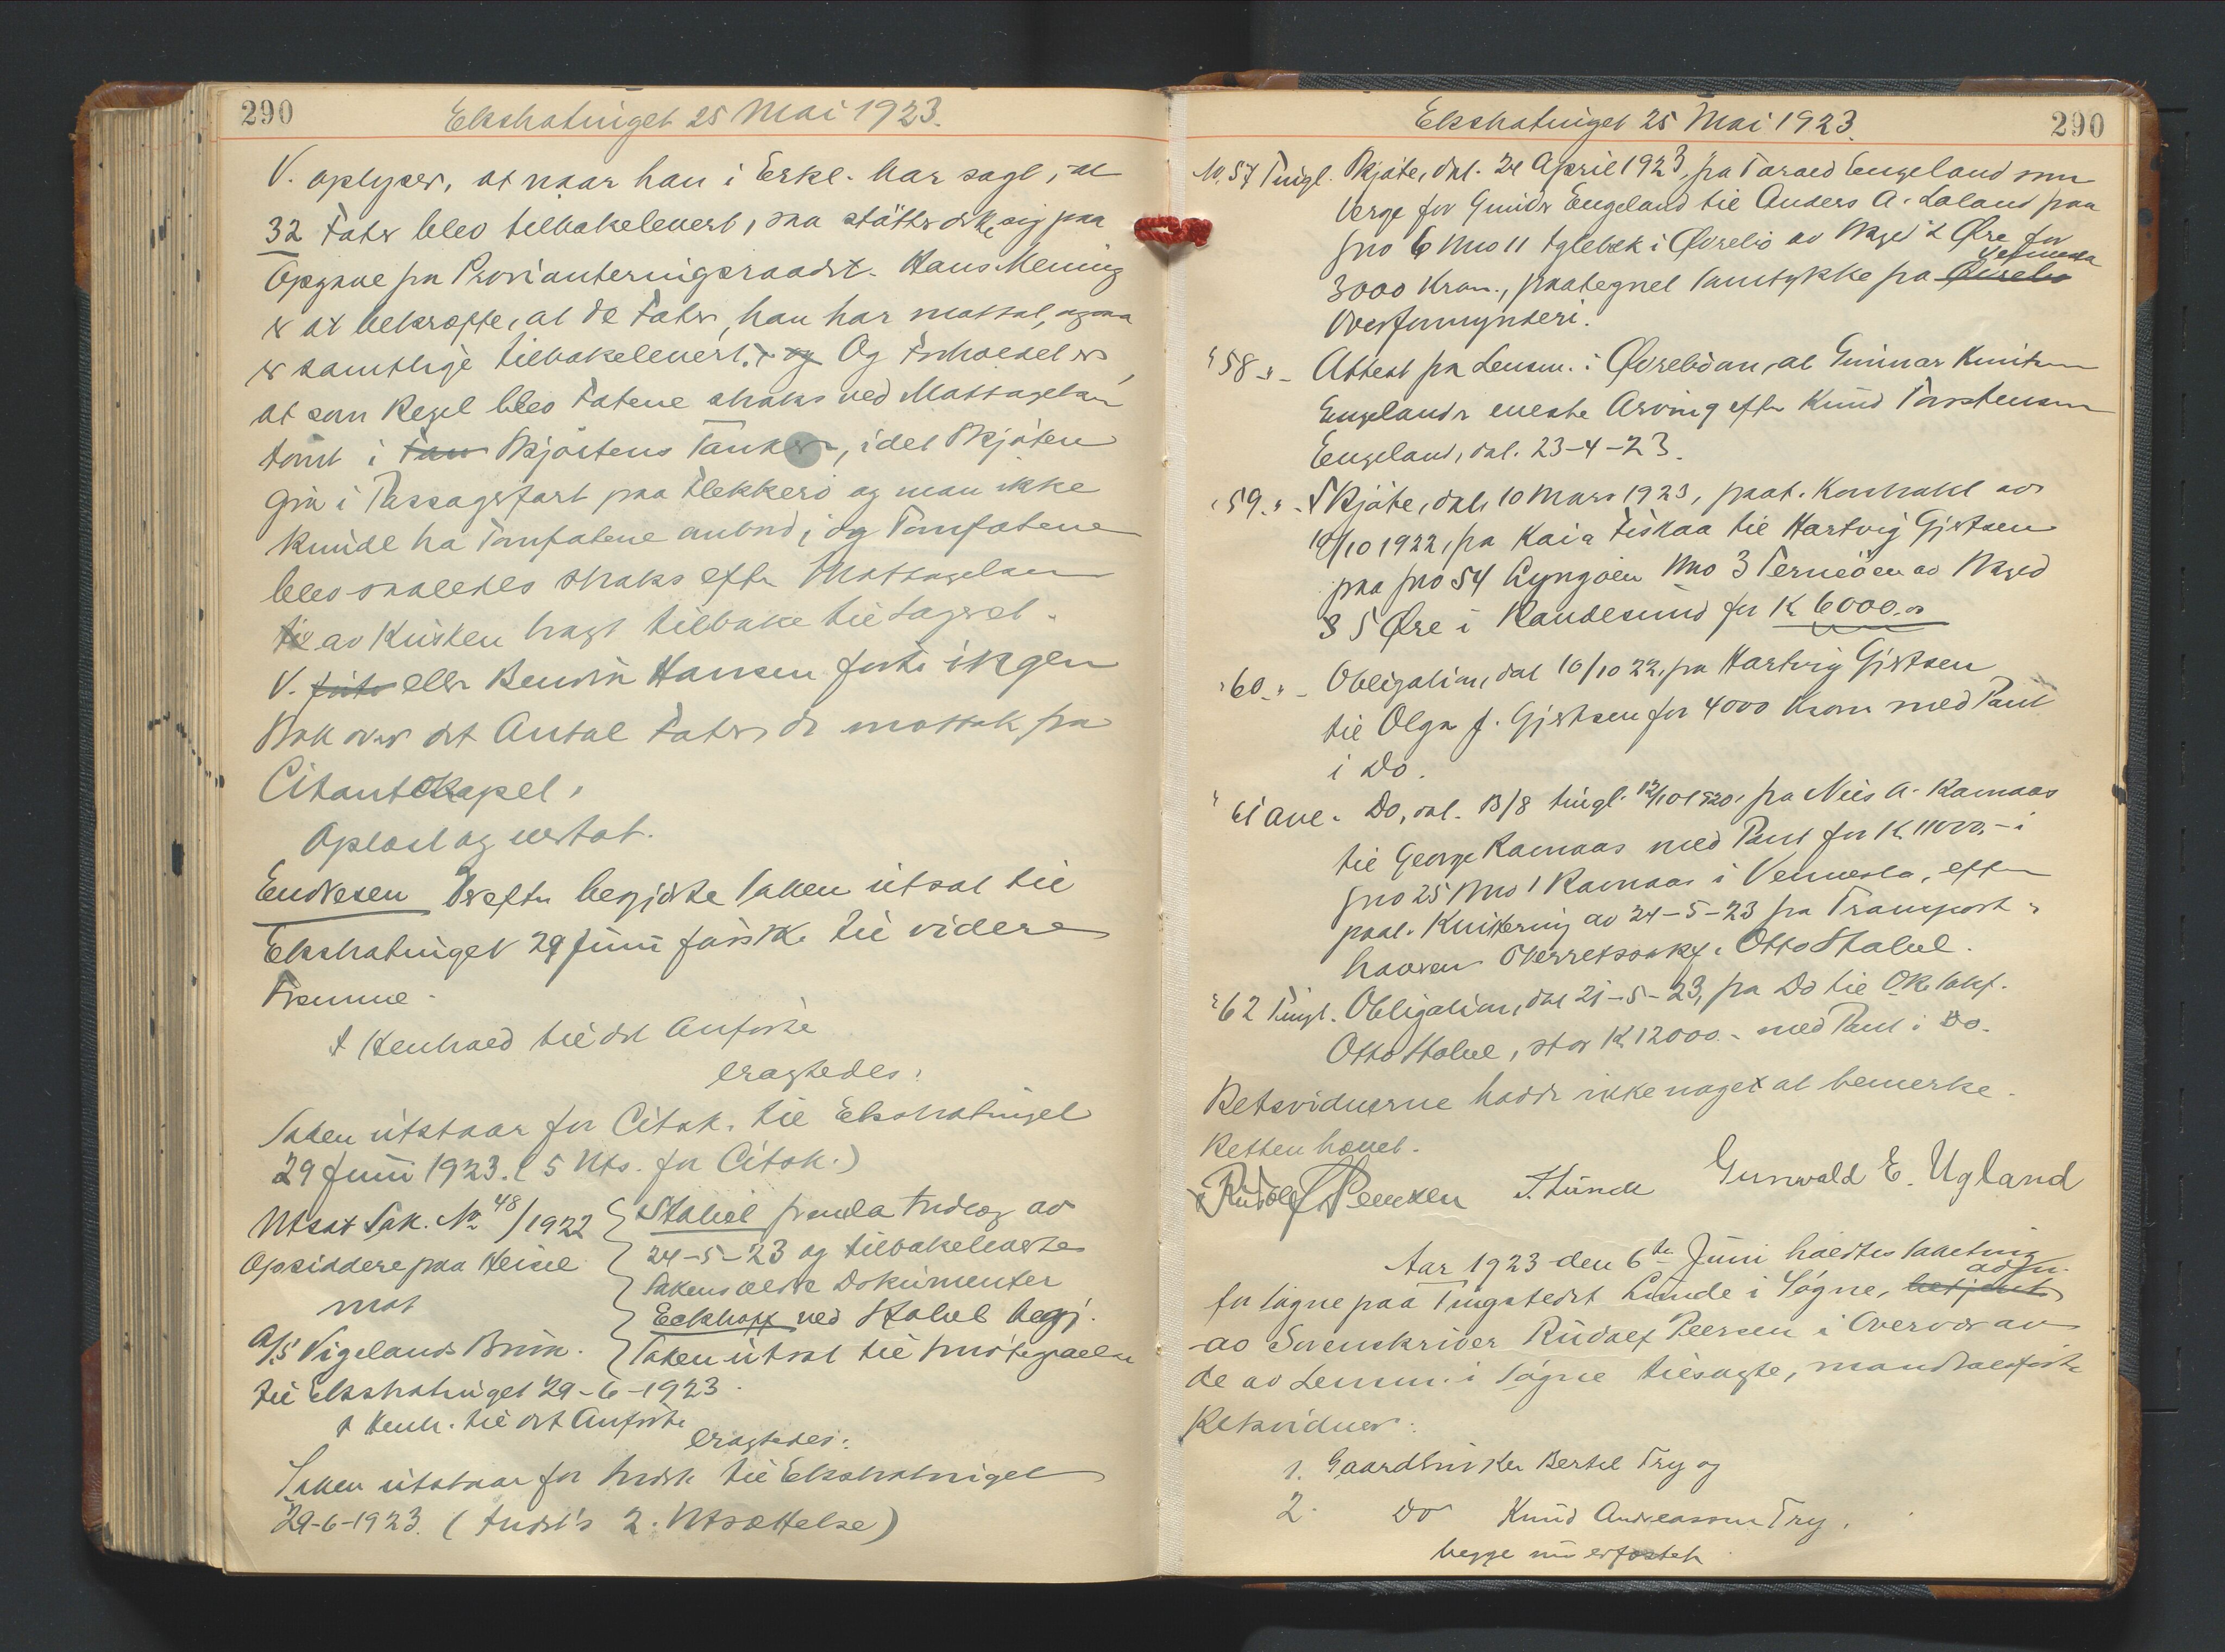 290
Ekstratinget 25 Mai 1923.
V. oplyser, at naar han i Erkl. har sagt, at
32 Fater blev tilbakelevert, saa støtter dette sig paa
Opgave fra Provianteringsraadet. Hans Mening
er at bekræfte, at de Fater, han har mottat, ogsaa
er samtlige tilbakelevert. og Og Forholdet er,
at som Regel blev Fatene straks ved Mottagelsen
tømt i Skjøitens Tanker, idet Skjøiten
gik i Passagerfart paa Flekkerø og man ikke
kunde ha Tomfatene ombord, og Tomfatene
blev saaledes straks efter Mottagelsen
til av Kusken bragt tilbake til Lageret.
V. førte eller Hansen førte ikgen
Bok over det Antal Fater, de mottok fra
Citantskapet.
Oplæst og vedtat.
Endresen Derefter begjærte Saken utsat til
Ekstratinget 29 Juni førstk. til videre
Fremme.
I Henhold til det Anførte
eragtedes:
Saken utstaar for Citsk. til Ekstratinget
29 Juni 1923. (5 Uts. for Citsk.)
Utsat Sak. No 48/1922
Opsiddere paa Heisel
mot
A/S Vigelands Bruk.
Stabel fremla Indlæg av
24-5-23 og tilbakeleverte
Sakens ældre Dokumenter
Eckhoff ved Stabel begj.
Saken utsat til Imøtegaaelse
til Ekstratinget 29-6-1923.
I Henh. til det Anførte
eragtedes:
Saken utstaar for Indst. til Ekstratinget
29-6-1923. (Indst's 2. Utsættelse)
Ekstratinget 25 Mai 1923.
290
No. 57 Tingl. Skjøte, dat. 24 April 1923, fra Tarald Engeland som
Verge for Engeland til Anders A. Laland paa
gno 6 bno 11 i Øvrebø av Skyld 2 Øre for
Vennesla
3000 Kron., paategnet Samtykke fra Øvrebø
Overformynderi.
" 58 " - Attest fra Lensm. i Øvrebø om, at Gunnar Knutsen
Engeland er eneste Arving efter Knud Torstensen
Engeland, dat. 23-4-23.
" 59. " - Skjøte, dat. 10 Mars 1923, paat. Kontrakt av
10/10 1922, fra Kaia Fiskaa til Hartvig Gjertsen
paa gno 54 Lyngøen bno 3 Terneøen av Skyld
35 Øre i Randesund for K. 6000.00
" 60 " - Obligation, dat 10/10 22, fra Hartvig Gjertsen
til Olga J. Gjertsen for 4000 Kron med Pant
i Do.
" 61 Avl. Do, dat. 13/8 tingl. 12/10 1920, fra Nils A. Ravnaas
til George Ravnaas med Pant for K. 11000.- i
gno 25 bno 1 Ravnaas i Vennesla, efter
paat. Kvittering av 24-5-23 fra Transport-
haveren Overretssakf. Otto Stabel.
" 62 Tingl. Obligation, dat 21-5-23, fra Do til O.R.sakf.
Otto Stabel, stor K. 12000.- med Pant i Do.
Retsvidnerne hadde ikke noget at bemerke.
Retten hævet.
Rudolf Peersen S. Lunde Gunvald E. Ugland
Aar 1923 den 6te Juni holdtes Saketing
adm.
for Søgne paa Tingstedet Lunde i Søgne, betjent
av Sorenskriver Rudolf Peersen i Overvær av
de av Lensm. i Søgne tilsagte, mandtalsførte
Retsvidner:
1. Gaardbruker Bertel Try og
2. Do Knud Andreassen Try.
begge nu